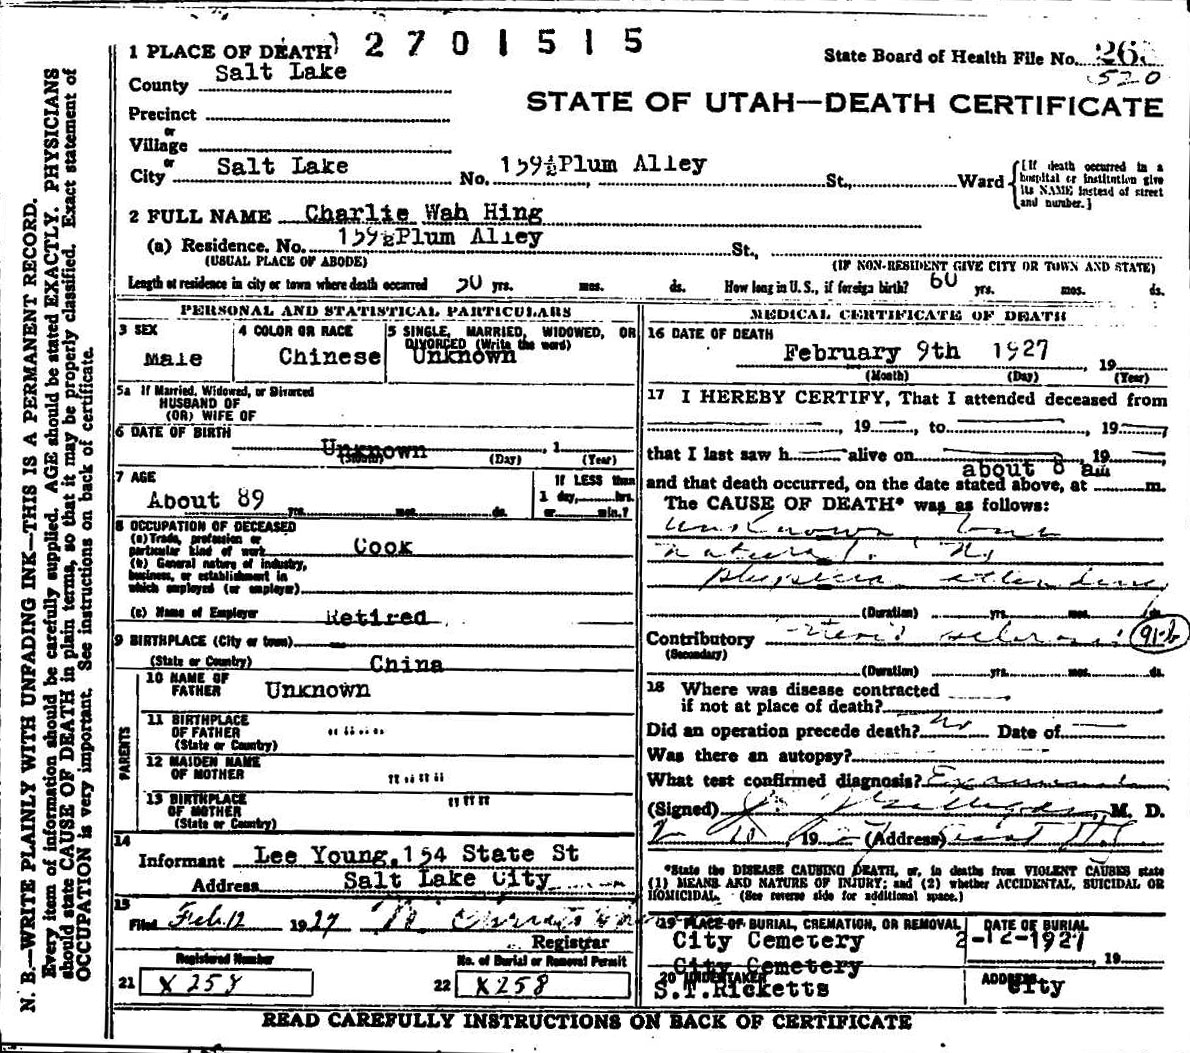 N. B.—WRITE PLAINLY WITH UNFADING INK—THIS IS A PERMANENT RECORD.
Every item of information should be carefully supplied. AGE should be stated EXACTLY. PHYSICIANS
should state CAUSE OF DEATH in plain terms, so that it may be properly classified. Exact statement of
OCCUPATION is very important. See instructions on back of certificate.
2701515
State Board of Health File No.
520
STATE OF UTAH—DEATH CERTIFICATE
1 PLACE OF DEATH
County Salt Lake
Precinct
or
Village
or
City Salt Lake No. 159½ Plum Alley St., Ward
[If death occurred in a
hospital or institution give
its NAME instead of street
and number.]
2 FULL NAME Charlie Wah Hing
(a) Residence. No. 159½ Plum Alley St.,
(USUAL PLACE OF ABODE) (IF NON-RESIDENT GIVE CITY OR TOWN AND STATE)
Length of residence in city or town where death occurred 50 yrs. mos. ds. How long in U. S., if foreign birth? 60 yrs. mos. ds.
PERSONAL AND STATISTICAL PARTICULARS
3 SEX
Male
4 COLOR OR RACE
Chinese
5 SINGLE, MARRIED, WIDOWED, OR
DIVORCED (Write the word)
Unknown
5a If Married, Widowed, or Divorced
HUSBAND OF
(OR) WIFE OF
6 DATE OF BIRTH
Unknown , 1
(Month) (Day) (Year)
7 AGE
About 89
yrs. mos. ds.
If LESS than
1 day, hrs.
or min.?
8 OCCUPATION OF DECEASED
(a) Trade, profession or
particular kind of work Cook
(b) General nature of industry,
business, or establishment in
which employed (or employer)
(c) Name of Employer Retired
9 BIRTHPLACE (City or town)
(State or Country) China
PARENTS
10 NAME OF
FATHER Unknown
11 BIRTHPLACE
OF FATHER " "
(State or Country)
12 MAIDEN NAME
OF MOTHER " "
13 BIRTHPLACE
OF MOTHER " "
(State or Country)
14
Informant Lee Young, 154 State St
Address Salt Lake City
15
Filed Feb. 12 1927
Registrar
Registered Number
21 X 258
No. of Burial or Removal Permit
22 X 258
MEDICAL CERTIFICATE OF DEATH
16 DATE OF DEATH
February 9th 1927 , 19
(Month) (Day) (Year)
17 I HEREBY CERTIFY, That I attended deceased from
, 19 , to , 19
that I last saw h alive on , 19
about 8 am
and that death occurred, on the date stated above, at m.
The CAUSE OF DEATH* was as follows:
Unknown,
Natural. No
physician attendance
(Duration) yrs. mos. ds.
Contributory 91-b
(Secondary)
(Duration) yrs. mos. ds.
18 Where was disease contracted
if not at place of death?
Did an operation precede death? No Date of
Was there an autopsy?
What test confirmed diagnosis?
(Signed) , M. D.
2 10 1927 (Address)
*State the DISEASE CAUSING DEATH, or, in deaths from VIOLENT CAUSES state
(1) MEANS AND NATURE OF INJURY; and (2) whether ACCIDENTAL, SUICIDAL OR
HOMICIDAL. (See reverse side for additional space.)
19 PLACE OF BURIAL, CREMATION, OR REMOVAL
City Cemetery
City Cemetery
DATE OF BURIAL
2-12-1927
, 19
20 UNDERTAKER
S.T.Ricketts
ADDRESS
City
READ CAREFULLY INSTRUCTIONS ON BACK OF CERTIFICATE